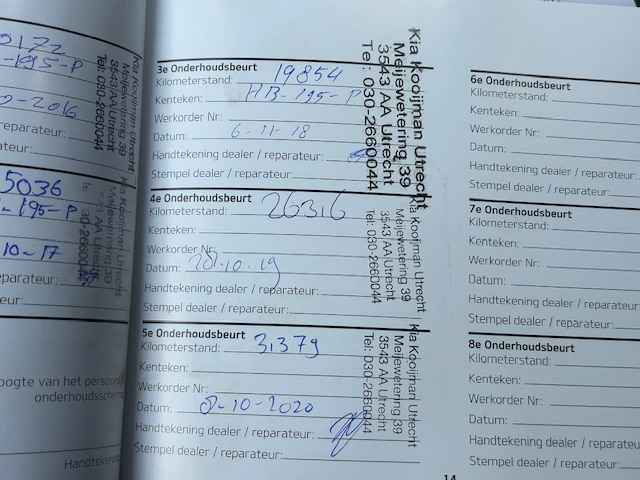 0172
-195-P
-2016
reparateur:
reparateur:
Kia Kooijman Utrecht
Meijewetering 39
3543 AA Utrecht
Tel: 030-2660044
5036
-195-P
10-17
reparateur:
reparateur:
Kia Kooijman Utrecht
Meijewetering 39
3543 AA Utrecht
030-2660044
oogte van het persoo
onderhoudsschem
Handteken
3e Onderhoudsbeurt
Kilometerstand: 19854
Kenteken: HB-195-P
Werkorder Nr:
Datum: 6-11-18
Handtekening dealer / reparateur:
Stempel dealer / reparateur:
Kia Kooijman Utrecht
Meijewetering 39
3543 AA Utrecht
Tel: 030-2660044
4e Onderhoudsbeurt
Kilometerstand: 26316
Kenteken:
Werkorder Nr:
Datum: -10-19
Handtekening dealer / reparateur:
Stempel dealer / reparateur:
Kia Kooijman Utrecht
Meijewetering 39
3543 AA Utrecht
Tel: 030-2660044
5e Onderhoudsbeurt
Kilometerstand: 31379
Kenteken:
Werkorder Nr:
Datum: 8-10-2020
Handtekening dealer / reparateur:
Stempel dealer / reparateur:
Kia Kooijman Utrecht
Meijewetering 39
3543 AA Utrecht
Tel: 030-2660044
14
6e Onderhoudsbeurt
Kilometerstand:
Kenteken:
Werkorder Nr:
Datum:
Handtekening dealer / reparateur:
Stempel dealer / reparateur:
7e Onderhoudsbeurt
Kilometerstand:
Kenteken:
Werkorder Nr:
Datum:
Handtekening dealer / reparateur:
Stempel dealer / reparateur:
8e Onderhoudsbeurt
Kilometerstand:
Kenteken:
Werkorder Nr:
Datum:
Handtekening dealer / reparateur:
Stempel dealer / reparateur: